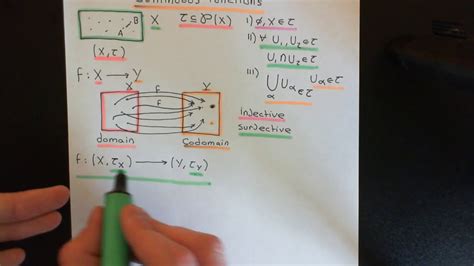 Continuous Functions
B
A
X
τ ⊆ 𝒫(X)
(X, τ)
i) ∅, X ∈ τ
ii) ∀ U₁, U₂ ∈ τ
U₁ ∩ U₂ ∈ τ
iii) ⋃ Uα ∈ τ Uα ∈ τ
α
f: X → Y
X f Y
f
domain
Codomain
injective
surjective
f: (X, τ_X) → (Y, τ_Y)